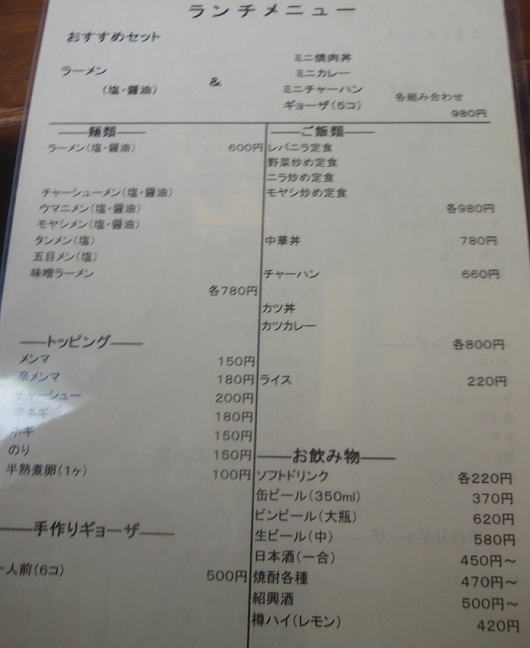 ランチメニュー
おすすめセット
ラーメン
(塩・醤油)
&
ミニ焼肉丼
ミニカレー
ミニチャーハン
ギョーザ(5コ)
各組み合わせ
980円
麺類
ラーメン(塩・醤油) 600円
チャーシューメン(塩・醤油)
ウマニメン(塩・醤油)
モヤシメン(塩・醤油)
タンメン(塩)
五目メン(塩)
味噌ラーメン
各780円
トッピング
メンマ 150円
辛メンマ 180円
チャーシュー 200円
辛ネギ 180円
ネギ 150円
のり 150円
半熟煮卵(1ヶ) 100円
手作りギョーザ
一人前(6コ) 500円
ご飯類
レバニラ定食
野菜炒め定食
ニラ炒め定食
モヤシ炒め定食
各980円
中華丼 780円
チャーハン 660円
カツ丼
カツカレー
各800円
ライス 220円
お飲み物
ソフトドリンク 各220円
缶ビール(350ml) 370円
ビンビール(大瓶) 620円
生ビール(中) 580円
日本酒(一合) 450円～
焼酎各種 470円～
紹興酒 500円～
樽ハイ(レモン) 420円